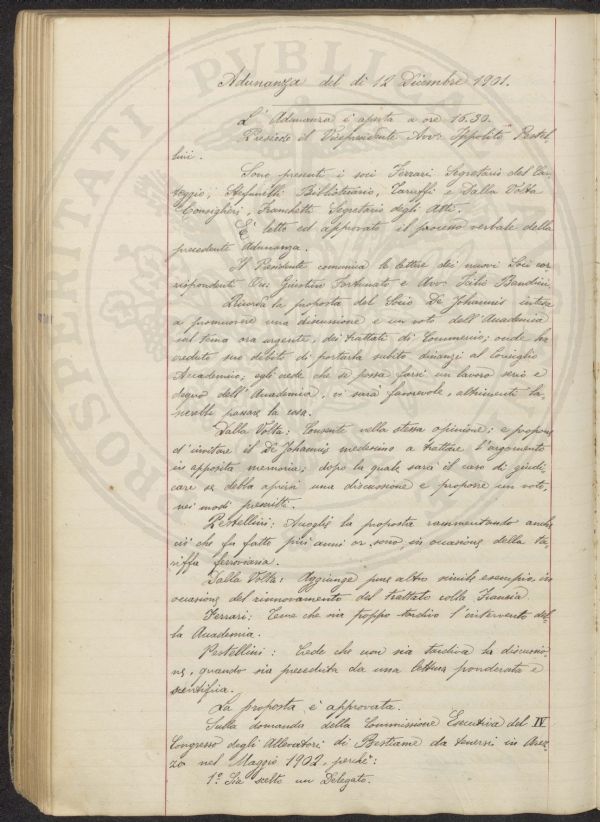 Adunanza del dì 12 Dicembre 1901.
L'Adunanza è aperta a ore 15.30.
Presiede il Vicepresidente Avv. Ippolito Pestel-
lini.
Sono presenti i soci Ferrari Segretario del Car-
teggio, Stefanelli Bibliotecario, Taruffi e Dalla Volta
Consiglieri, Franchetti Segretario degli Atti.
È letto ed approvato il processo verbale della
precedente Adunanza.
Il Presidente comunica le lettere dei nuovi Soci cor-
rispondenti On: Giustino Fortunato e Avv. Bandini.
la proposta del Socio De Johannis intesa
a promuovere una discussione e un voto dell'Accademia
sul tema ora urgente, dei trattati di Commercio; onde ha
creduto suo debito di portarla subito dinanzi al Consiglio
Accademico; egli vede che se possa farsi un lavoro serio e
degno dell'Accademia, vi sarà favorevole, altrimenti la-
scerebbe passare la cosa.
Dalla Volta: Consente nella stessa opinione; e propone
d'invitare il De Johannis medesimo a trattare l'argomento
in apposita memoria; dopo la quale sarà il caso di giudi-
care se debba aprirsi una discussione e proporre un voto,
nei modi prescritti.
Pestellini: Accoglie la proposta rammentando anche
ciò che fu fatto più anni or sono, in occasione della ta-
riffa ferroviaria.
Dalla Volta: Aggiunge pure altro simile esempio in
occasione del rinnovamento del trattato colla Francia.
Ferrari: Teme che sia troppo tardivo l'intervento del-
la Accademia.
Pestellini: Crede che non sia tardiva la discussio-
ne, quando sia preceduta da una lettura ponderata e
scientifica.
La proposta è approvata.
Sulla domanda della Commissione Esecutiva del IV
Congresso degli Allevatori di Bestiame da tenersi in Arez-
zo nel Maggio 1902, perchè:
1.º Sia scelto un Delegato.
PROSPERITATI PUBLICAE